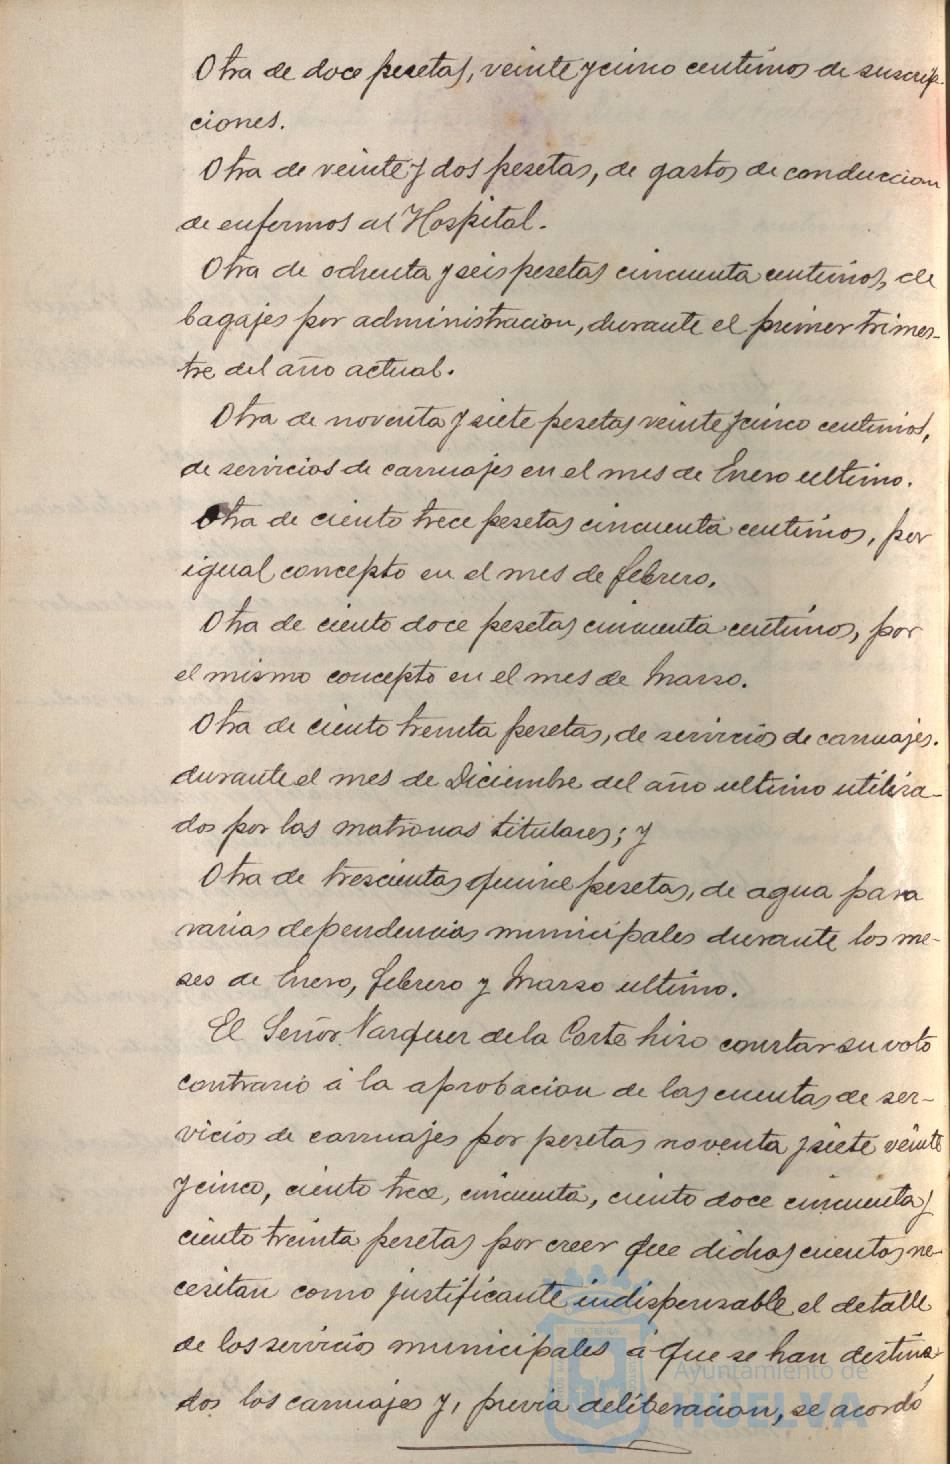 Otra de doce pesetas, veinte y cinco centimos de suscrip-
ciones.
Otra de veinte y dos pesetas, de gastos de conduccion
de enfermos al Hospital.
Otra de ochenta y seis pesetas cincuenta centimos, de
bagajes por administracion, durante el primer trimes-
tre del año actual.
Otra de noventa y siete pesetas veinte y cinco centimos,
de servicios de carruajes en el mes de Enero ultimo.
Otra de ciento trece pesetas cincuenta centimos, por
igual concepto en el mes de febrero.
Otra de ciento doce pesetas cincuenta centimos, por
el mismo concepto en el mes de Marzo.
Otra de ciento treinta pesetas, de servicios de carruajes.
durante el mes de Diciembre del año ultimo utiliza-
dos por las matronas titulares; y
Otra de trescientas quince pesetas, de agua para
varias dependencias municipales durante los me-
ses de Enero, febrero y Marzo ultimo.
El Señor Vazquez de la Corte hizo constar su voto
contrario á la aprobacion de las cuentas de ser-
vicios de carruajes por pesetas noventa y siete veinte
y cinco, ciento trece, cincuenta, ciento doce cincuenta y
ciento treinta pesetas por creer que dichas cuentas ne-
cesitan como justificante indispensable el detalle
de los servicios municipales á que se han destina-
dos los carruajes y, previa deliberacion, se acordó
Ayuntamiento de
HUELVA